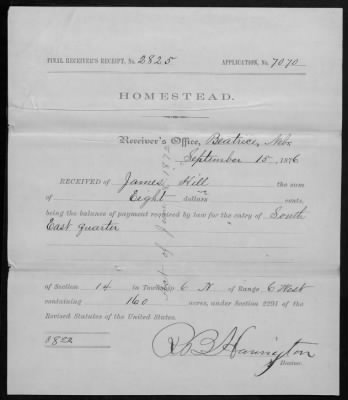 FINAL RECEIVER'S RECEIPT, No. 2825 APPLICATION, No. 7070
HOMESTEAD.
Receiver's Office, Beatrice, Neb.
September 15, 1876
RECEIVED OF James Hill the sum
of Eight dollars cents,
being the balance of payment required by law for the entry of South
East quarter
of Section 14 in Township 6 N of Range 6 West
containing 160 acres, under Section 2291 of the
Revised Statutes of the United States.
$8
R B Harrington
Receiver.